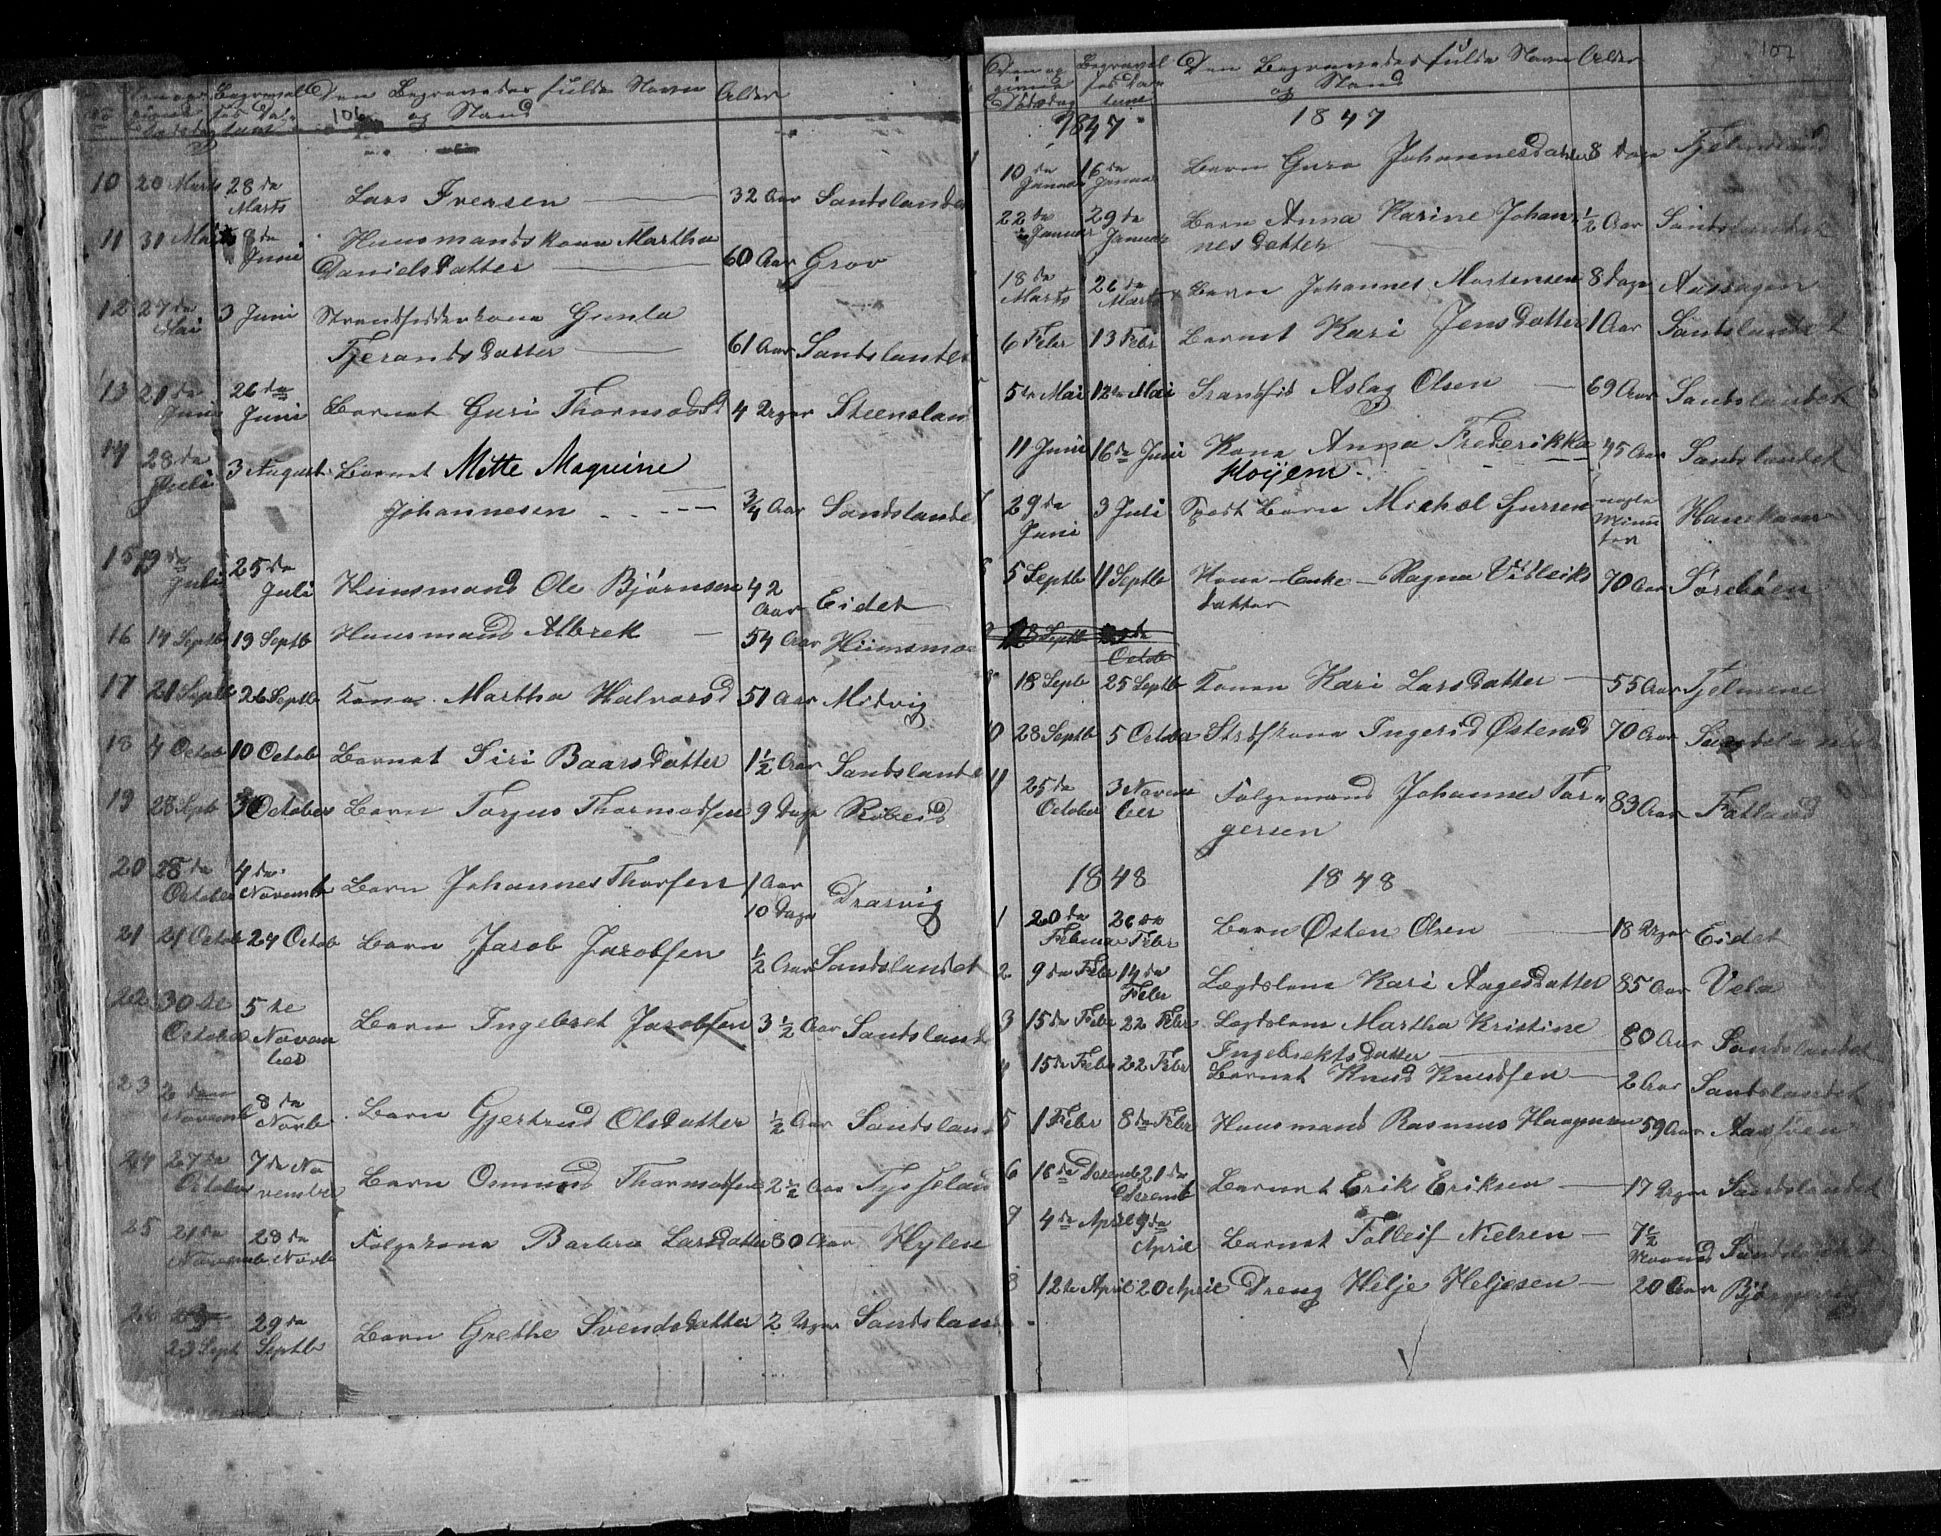 No Den op- Begravel- Den Begravedes fulde Navn Alder
givne ses Da-
Dødsdag tum 106 og Stand
10 20 Marts 28 da Marts Lars Iversen 32 Aar Sandslandet
11 31 Marts 8 da Juni Huusmandskone Martha
Danielsdatter 60 Aar Grov
12 27 da Mai 3 Juni Strandsidderkone Gunla
Tjerandsdatter 61 Aar Sandslandet
13 21 da Juni 26 da Juni Barnet Guri Thormodsd 4 Uger Steensland
14 28 da Juli 3 August Barnet Mette Maquine
Johannesen 3/4 Aar Sandslande
15 19 da Juli 25 da Juli Huusmand Ole Bjørnsen 42 Aar Eidet
16 14 Septb 19 Septb Huusmand Albrek 54 Aar
17 21 Septb 26 Septb Kone Martha Halvorsd 51 Aar Midvig
18 4 Octob 10 Octob Barnet Siri Baarsdatter 1 1/2 Aar Sandslande
19 28 Sptb October Barn Torjus Thormodsen 9 Dage Røbeid
20 28 da October 4 da Novemb Barn Johannes Thorsen 1 Aar
10 Dage Drarvig
21 21 Octob 24 Octob Barn Jacob Jacobsen 1/2 Aar Sandslandet
22 30 de October 5 de Novem
ber Barn Ingebret Jacobsen 3 1/2 Aar Sandsland
23 2 den Novemb 8 da Novb Barn Gjertrud Olsdatter 1/2 Aar Sandsland
24 27 da October 7 da No
vember Barn Osmund Thormodsen 2 1/2 Aar Tysseland
25 21 da Novemb 28 da Novb Følgekone Barbra Larsdatter 80 Aar Hylen
26 23 Sept 29 da Septb Barn Grethe Svendsdatter 2 Uger Sandsland
Den op- Begravel- Den Begravedes fulde Navn Alder 107
givne ses Da-
Dødsdag tum og Stand
1847 1847
1 10 da Januar 16 da Januar Barn Guro Johannesdatter 8 Dage
22 da Januar 29 da Januar Barn Anna Karine Johan-
nesdatter 1/2 Aar Sandslandet
18 da Marts 26 da Marts Barn Johannes Mortensen 8 Dage
6 Febr 13 Febr Barnet Kari Jensdatter 1 Aar Sandslandet
5 5te Mai 12te Mai Strandsid Aslag Olsen 69 Aar Sandslandet
11 Juni 16 da Juni Kone Anna Frederikka
Høÿem 45 Aar Sandslandet
7 29 da Juni 3 Juli Spædt Barn Michel Sjursen nogle
Minut
ter Hanekam
8 5 Septb 11 Septb Kone Enke Ragna Vidleiks
datter 70 Aar Sørebøen
9 18 Septb
Octob
18 Septb 25 Septb Konen Kari Larsdatter 55 Aar Tjelmene
10 28 Septb 5 October Strdskone Ingerid Østensd 70 Aar Sandslandet
11 25 da October 3 Novem
ber Følgemand Johannes Tor-
gersen 83 Aar Fatland
1848 1848
1 20 da Februar 26 da Febr Barn Østen Olsen 18 Uger Eidet
2 9 da Febr 14 da Febr Lægdslem Kari Aagesdatter 85 Aar Vela
3 15 da Febr 22 Febr Lægdslem Martha Kristine
Ingebrektsdatter 80 Aar Sandslandet
4 15 da Febr 22 Febr Barnet Knud Knudsen 2 Aar Sandslandet
5 1 Febr 8 da Febr Huusmand Rasmus Haagensen 59 Aar
6 16 da Decemb 21 da Decemb Barnet Erik Eriksen 17 Uger Sandslandet
7 4 da April 9 da April Barnet Tolleif Nielsen 7 1/2
Maaned Sandslandet
8 12te April 20 April Dreng Helje Heljesen 20 Aar